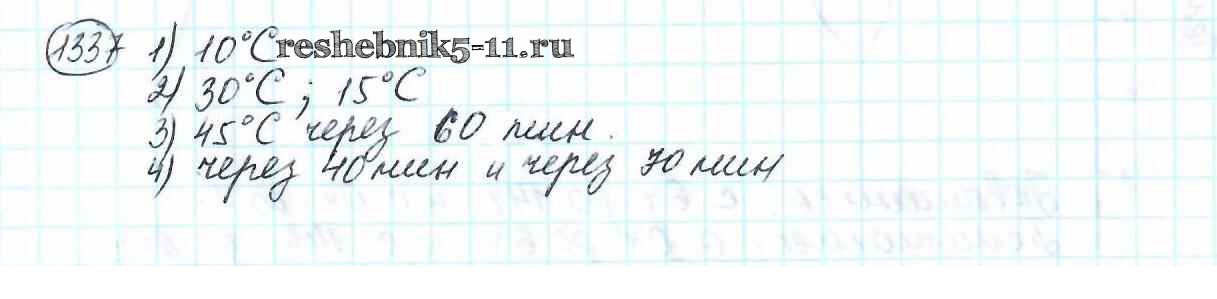 1337 1) 10°C reshebnik5-11.ru
2) 30°C ; 15°C
3) 45°C через 60 мин.
4) через 40 мин и через 70 мин